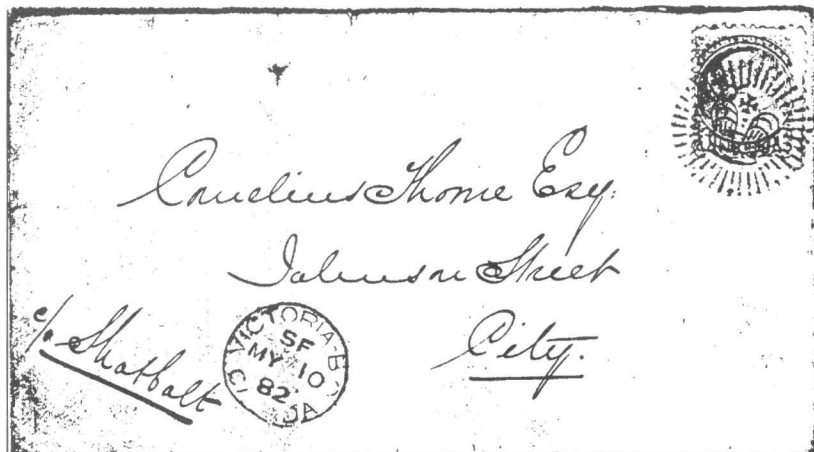 Cornelius Thorne Esq.
Johnson Street
City.
c/o Shotbolt
VICTORIA B.C.
SF
MY 10
82